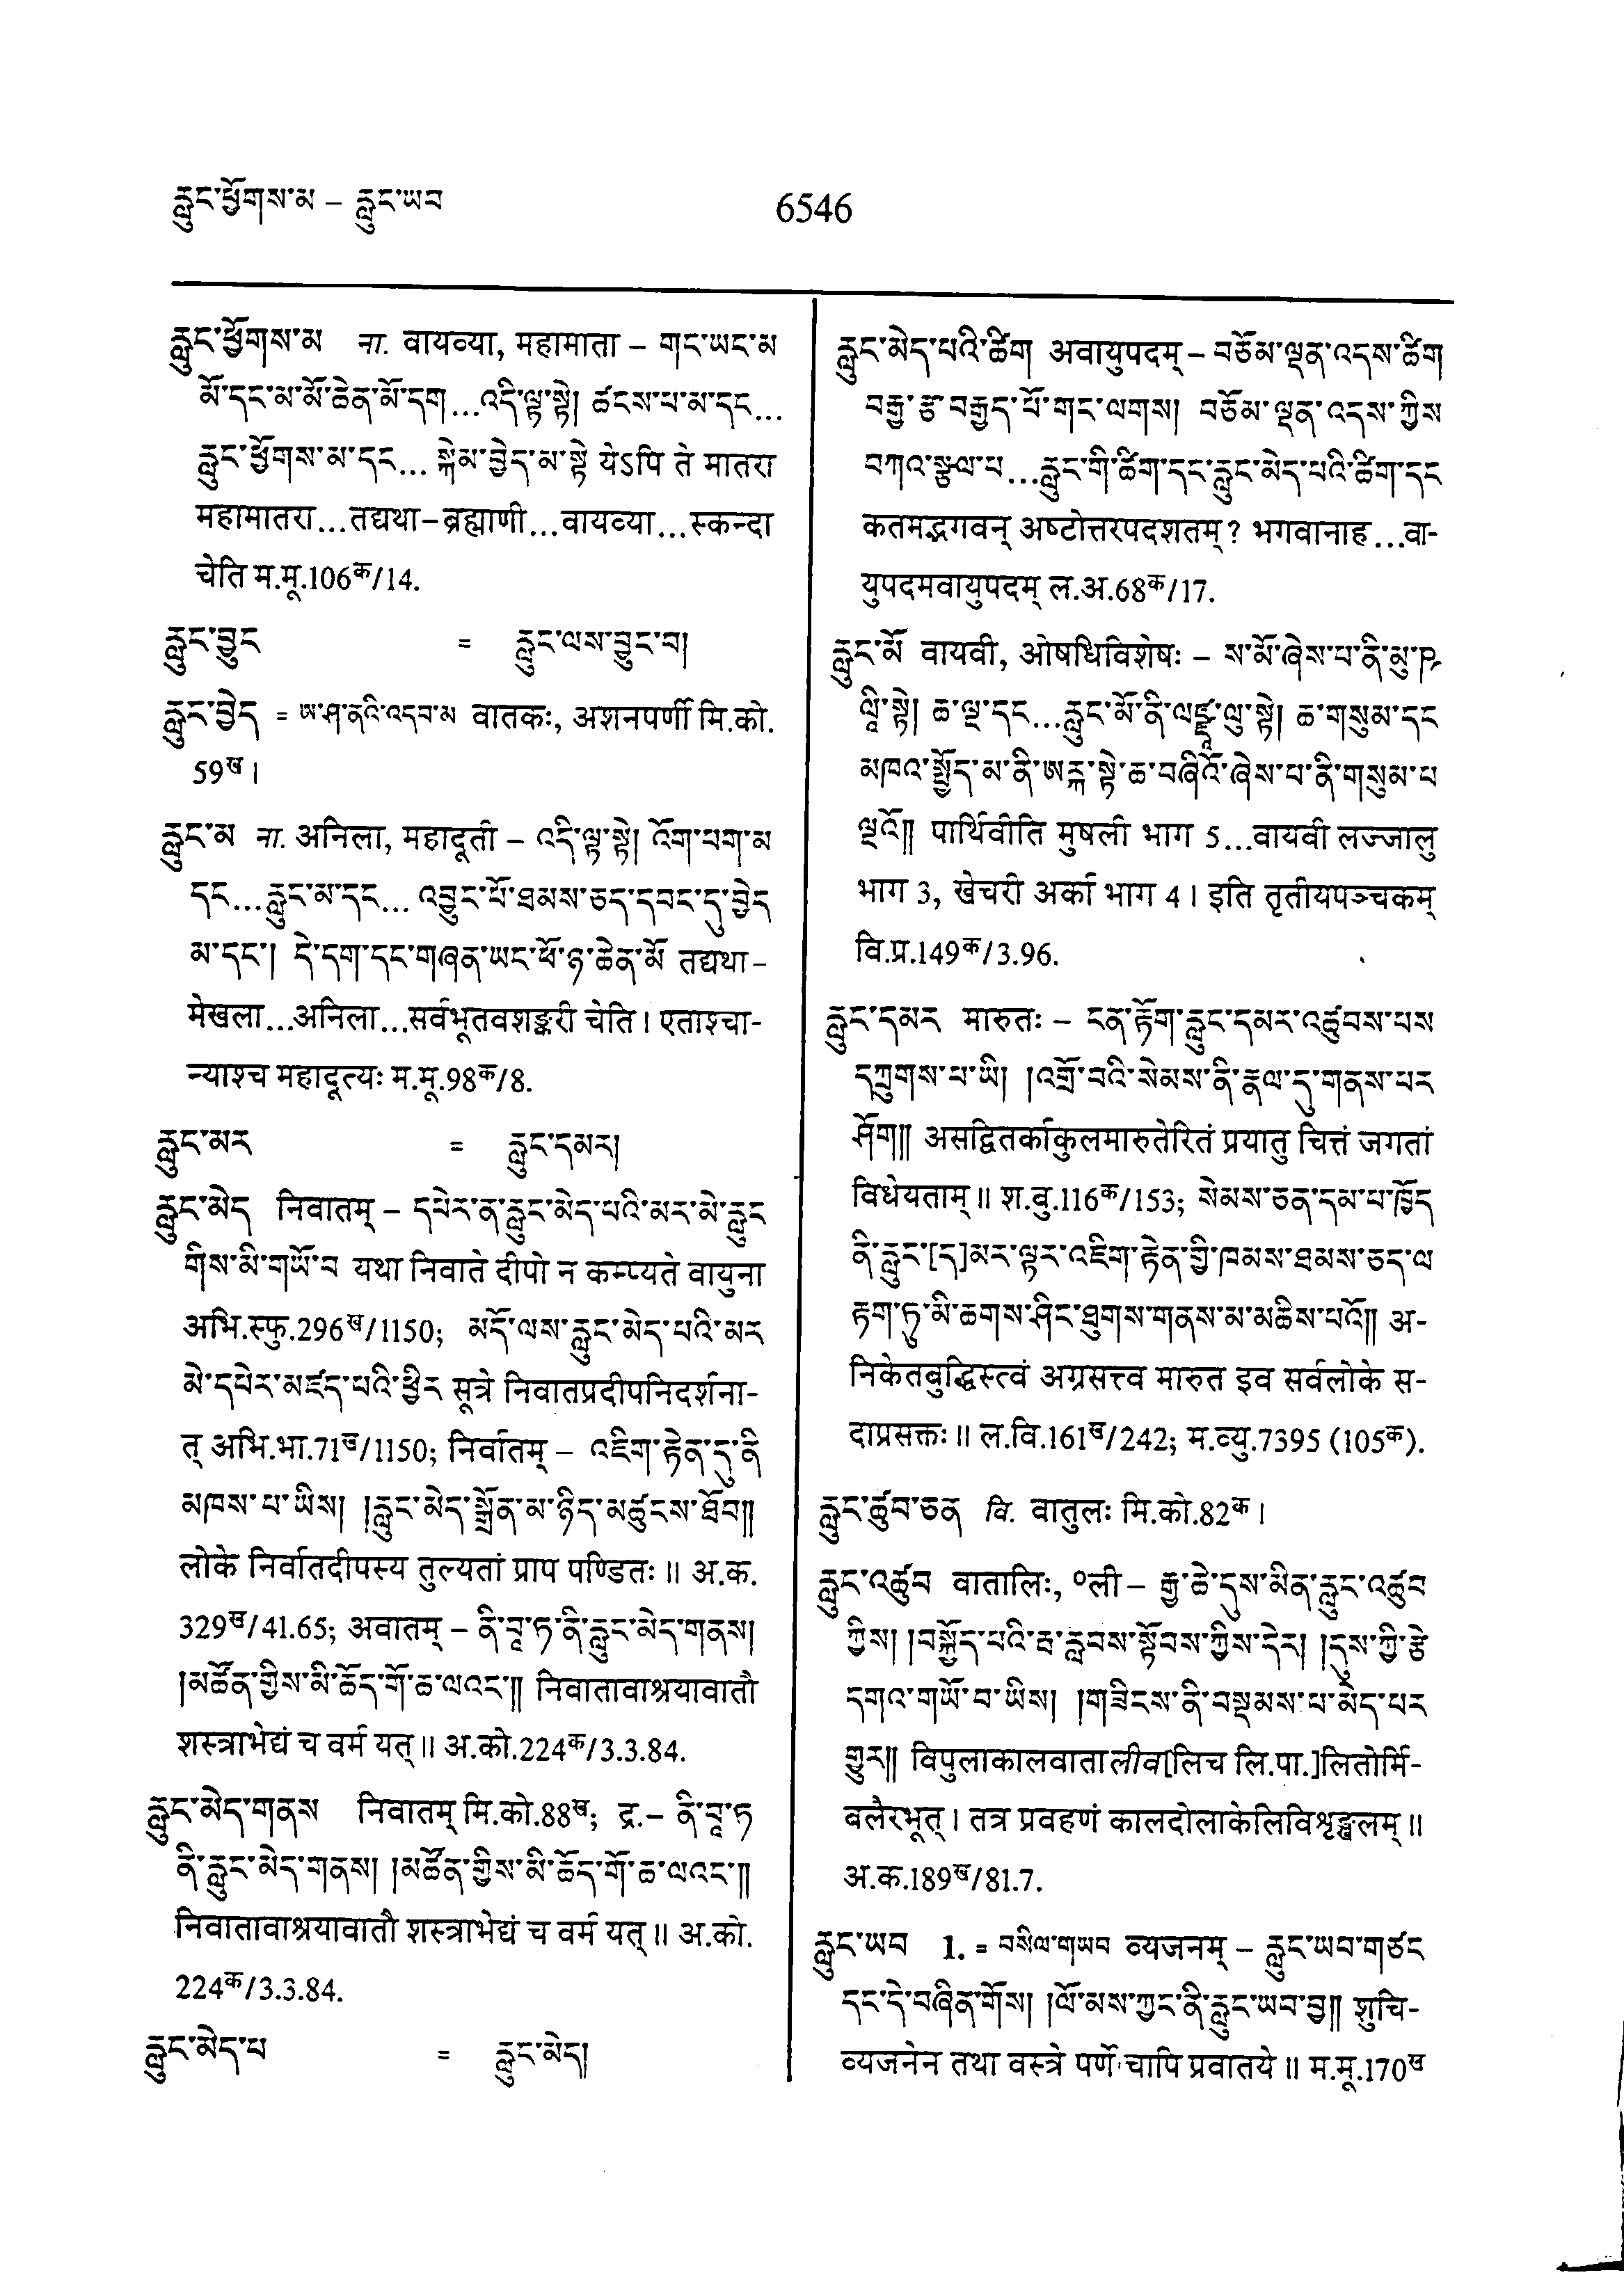 རླུང་ཕྱོགས་མ – རླུང་ཡབ
6546
རླུང་ཕྱོགས་མ ना. वायव्या, महामाता – གང་ཡང་མ
མོ་དང་མ་མོ་ཆེན་མོ་དག...འདི་ལྟ་སྟེ། ཚངས་པ་མ་དང...
རླུང་ཕྱོགས་མ་དང... སྐེམ་བྱེད་མ་སྟེ येऽपि ते मातरा
महामातरा...तद्यथा–ब्रह्माणी...वायव्या...स्कन्दा
चेति म.मू.106क/14.
རླུང་བྱུང = རླུང་ལས་བྱུང་བ།
རླུང་བྱེད = ཨ་ཤ་ནའི་འདབ་མ वातकः, अशनपर्णी मि.को.
59ख।
རླུང་མ ना. अनिला, महादूती – འདི་ལྟ་སྟེ། འོག་པག་མ
དང...རླུང་མ་དང... འབྱུང་པོ་ཐམས་ཅད་དབང་དུ་བྱེད
མ་དང་། དེ་དག་དང་གཞན་ཡང་ཕོ་ཉ་ཆེན་མོ तद्यथा–
मेखला...अनिला...सर्वभूतवशङ्करी चेति। एताश्चा-
न्याश्च महादूत्यः म.मू.98क/8.
རླུང་མར = རླུང་དམར།
རླུང་མེད निवातम् – དཔེར་ན་རླུང་མེད་པའི་མར་མེ་རླུང
གིས་མི་གཡོ་བ यथा निवाते दीपो न कम्प्यते वायुना
अभि.स्फु.296ख/1150; མདོ་ལས་རླུང་མེད་པའི་མར
མེ་དཔེར་མཛད་པའི་ཕྱིར सूत्रे निवातप्रदीपनिदर्शना-
त् अभि.भा.71ख/1150; निर्वातम् – འཇིག་རྟེན་དུ་ནི
མཁས་པ་ཡིས། །རླུང་མེད་སྒྲོན་མ་ཉིད་མཚུངས་ཐོབ།།
लोके निर्वातदीपस्य तुल्यतां प्राप पण्डितः॥ अ.क.
329ख/41.65; अवातम् – ནི་བཱ་ཏ་ནི་རླུང་མེད་གནས།
།མཚོན་གྱིས་མི་ཆོད་གོ་ཆ་ལའང་།། निवातावाश्रयावातौ
शस्त्राभेद्यं च वर्म यत्॥ अ.को.224क/3.3.84.
རླུང་མེད་གནས निवातम् मि.को.88ख; द्र.– ནི་བཱ་ཏ
ནི་རླུང་མེད་གནས། །མཚོན་གྱིས་མི་ཆོད་གོ་ཆ་ལའང་།།
निवातावाश्रयावातौ शस्त्राभेद्यं च वर्म यत्॥ अ.को.
224क/3.3.84.
རླུང་མེད་པ = རླུང་མེད།
རླུང་མེད་པའི་ཚིག अवायुपदम् – བཅོམ་ལྡན་འདས་ཚིག
བརྒྱ་རྩ་བརྒྱད་པོ་གང་ལགས། བཅོམ་ལྡན་འདས་ཀྱིས
བཀའ་སྩལ་པ...རླུང་གི་ཚིག་དང་རླུང་མེད་པའི་ཚིག་དང
कतमद्भगवन् अष्टोत्तरपदशतम्? भगवानाह...वा-
युपदमवायुपदम् ल.अ.68क/17.
རླུང་མོ वायवी, ओषधिविशेषः – ས་མོ་ཞེས་པ་ནི་མུ་ཥ
ལཱི་སྟེ། ཆ་ལྔ་དང...རླུང་མོ་ནི་ལཛྫཱ་ལུ་སྟེ། ཆ་གསུམ་དང
མཁའ་སྤྱོད་མ་ནི་ཨརྐ་སྟེ་ཆ་བཞིའོ་ཞེས་པ་ནི་གསུམ་པ
ལྔའོ།། पार्थिवीति मुषली भाग 5...वायवी लज्जालु
भाग 3, खेचरी अर्का भाग 4। इति तृतीयपञ्चकम्
वि.प्र.149क/3.96.
རླུང་དམར मारुतः – ངན་རྟོག་རླུང་དམར་འཚུབས་པས
དཀྲུགས་པ་ཡི། །འགྲོ་བའི་སེམས་ནི་རྣལ་དུ་གནས་པར
ཤོག།། असद्वितर्काकुलमारुतेरितं प्रयातु चित्तं जगतां
विधेयताम्॥ श.बु.116क/153; སེམས་ཅན་དམ་པ་ཁྱོད
ནི་རླུང་[ད]མར་ལྟར་འཇིག་རྟེན་གྱི་ཁམས་ཐམས་ཅད་ལ
རྟག་ཏུ་མི་ཆགས་ཤིང་ཐུགས་གནས་མ་མཆིས་པའོ།། अ-
निकेतबुद्धिस्त्वं अग्रसत्त्व मारुत इव सर्वलोके स-
दाप्रसक्तः॥ ल.वि.161ख/242; म.व्यु.7395 (105क).
རླུང་ཚུབ་ཅན वि. वातुलः मि.को.82क।
རླུང་འཚུབ वातालिः, ०ली – རྒྱ་ཆེ་དུས་མིན་རླུང་འཚུབ
ཀྱིས། །བསྐྱོད་པའི་རྦ་རླབས་སྟོབས་ཀྱིས་དེར། །དུས་ཀྱི་རྩེ
དགའ་གཡོ་བ་ཡིས། །གཟིངས་ནི་བསྡམས་པ་མེད་པར
གྱུར།། विपुलाकालवातालीव[लिच लि.पा.]लितोर्मि-
बलैरभूत्। तत्र प्रवहणं कालदोलाकेलिविशृङ्खलम्॥
अ.क.189ख/81.7.
རླུང་ཡབ 1. = བསིལ་གཡབ व्यजनम् – རླུང་ཡབ་གཙང
དང་དེ་བཞིན་གོས། །ལོ་མས་ཀྱང་ནི་རླུང་ཡབ་བྱ།། शुचि-
व्यजनेन तथा वस्त्रे पर्णे चापि प्रवातये॥ म.मू.170ख